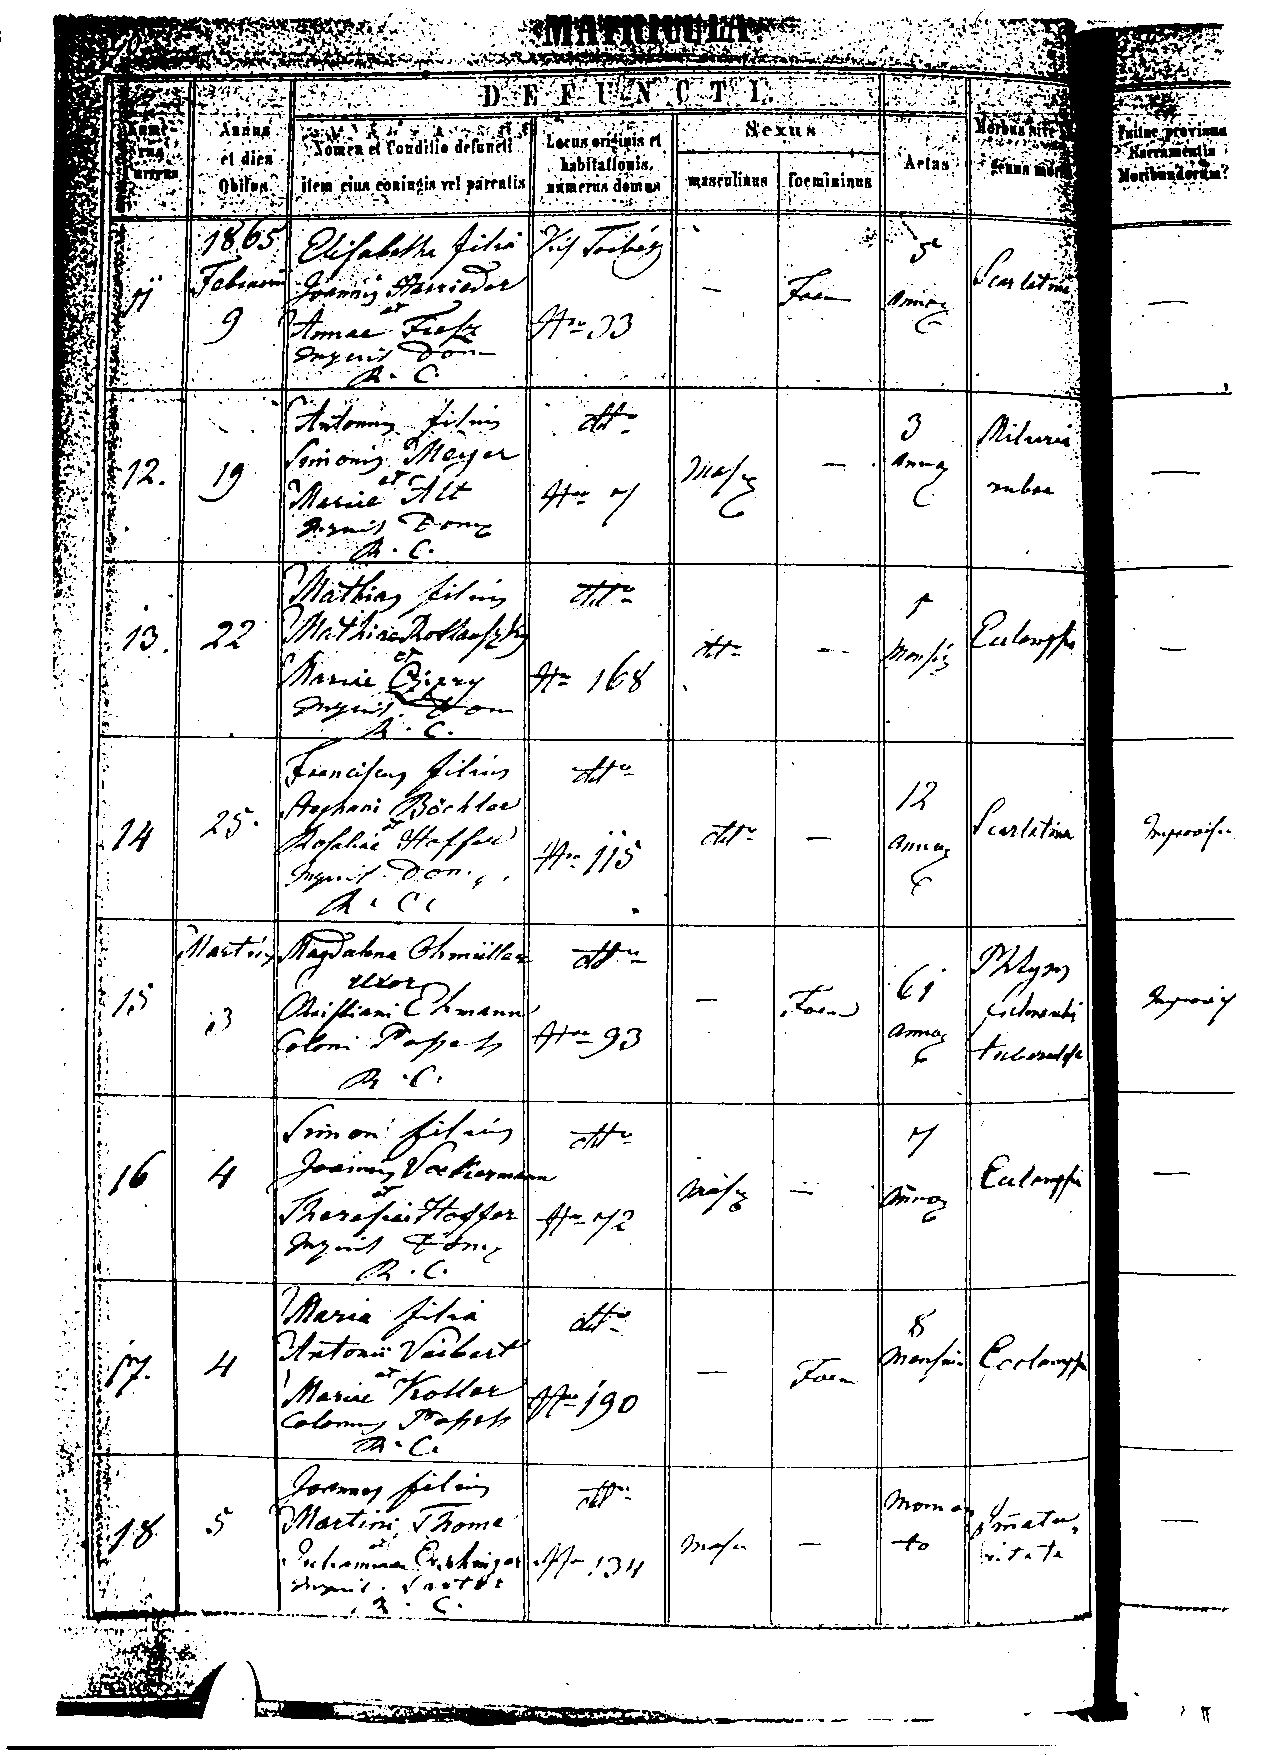 MATRICULA
DEFUNCTI.
Nume-
rus
currens
Annus
et dies
Obitus
Nomen et Conditio defuncti
item ejus conjugis vel parentis
Locus originis et
habitationis,
numerus domus
Sexus
masculinus
foemininus
Aetas
Morbus sive
genus mortis
Fuitne provisus
Sacramentis
Moribundorum?
11
1865
Februarii
9
Elisabetha filia
Joannis Harrieder
et
Annae
Inquil. Dom
R. C.
Kis Torbágy
Nro 33
—
Foem
5
annor
Scarlatina
—
12.
19
Antonius filius
Simonis Mayer
et
Mariae Alt
Inquil Dom
R. C.
dtto
Nro 7
Masc
—
3
annor
Miliaria
rubra
—
13.
22
Mathias filius
Mathiae
et
Mariae
Inquil. Dom
R. C.
dtto
Nro 168
dtto
—
Mensis
Eclampsia
—
14
25.
Franciscus filius
Stephani Böchler
et
Rosaliae Hoffer
Inquil. Dom.
R. C.
dtto
Nro 115
dtto
—
12
annor
Scarlatina
Improvisus
15
Martius
3
Magdalena Ohmüller
uxor
Christiani Ehmann
Coloni
R. C.
dtto
Nro 93
—
Foem
61
annor
Phtysis
pulmonalis
tuberculosa
16
4
Simon filius
Joannis Vackermann
et
Theresiae Hoffer
Inquil Dom
R. C.
dtto
Nro 72
Masc
—
7
annor
Eclampsia
—
17.
4
Maria filia
Antonii Vaibert
et
Mariae Koller
Colonus
R. C.
dtto
Nro 190
—
Foem
8
Mensium
Eclampsia
18
5
Joannes filius
Martini Thoma
et
Inquil.
R. C.
dtto
Nro 134
Masc
—
Momen
to
—